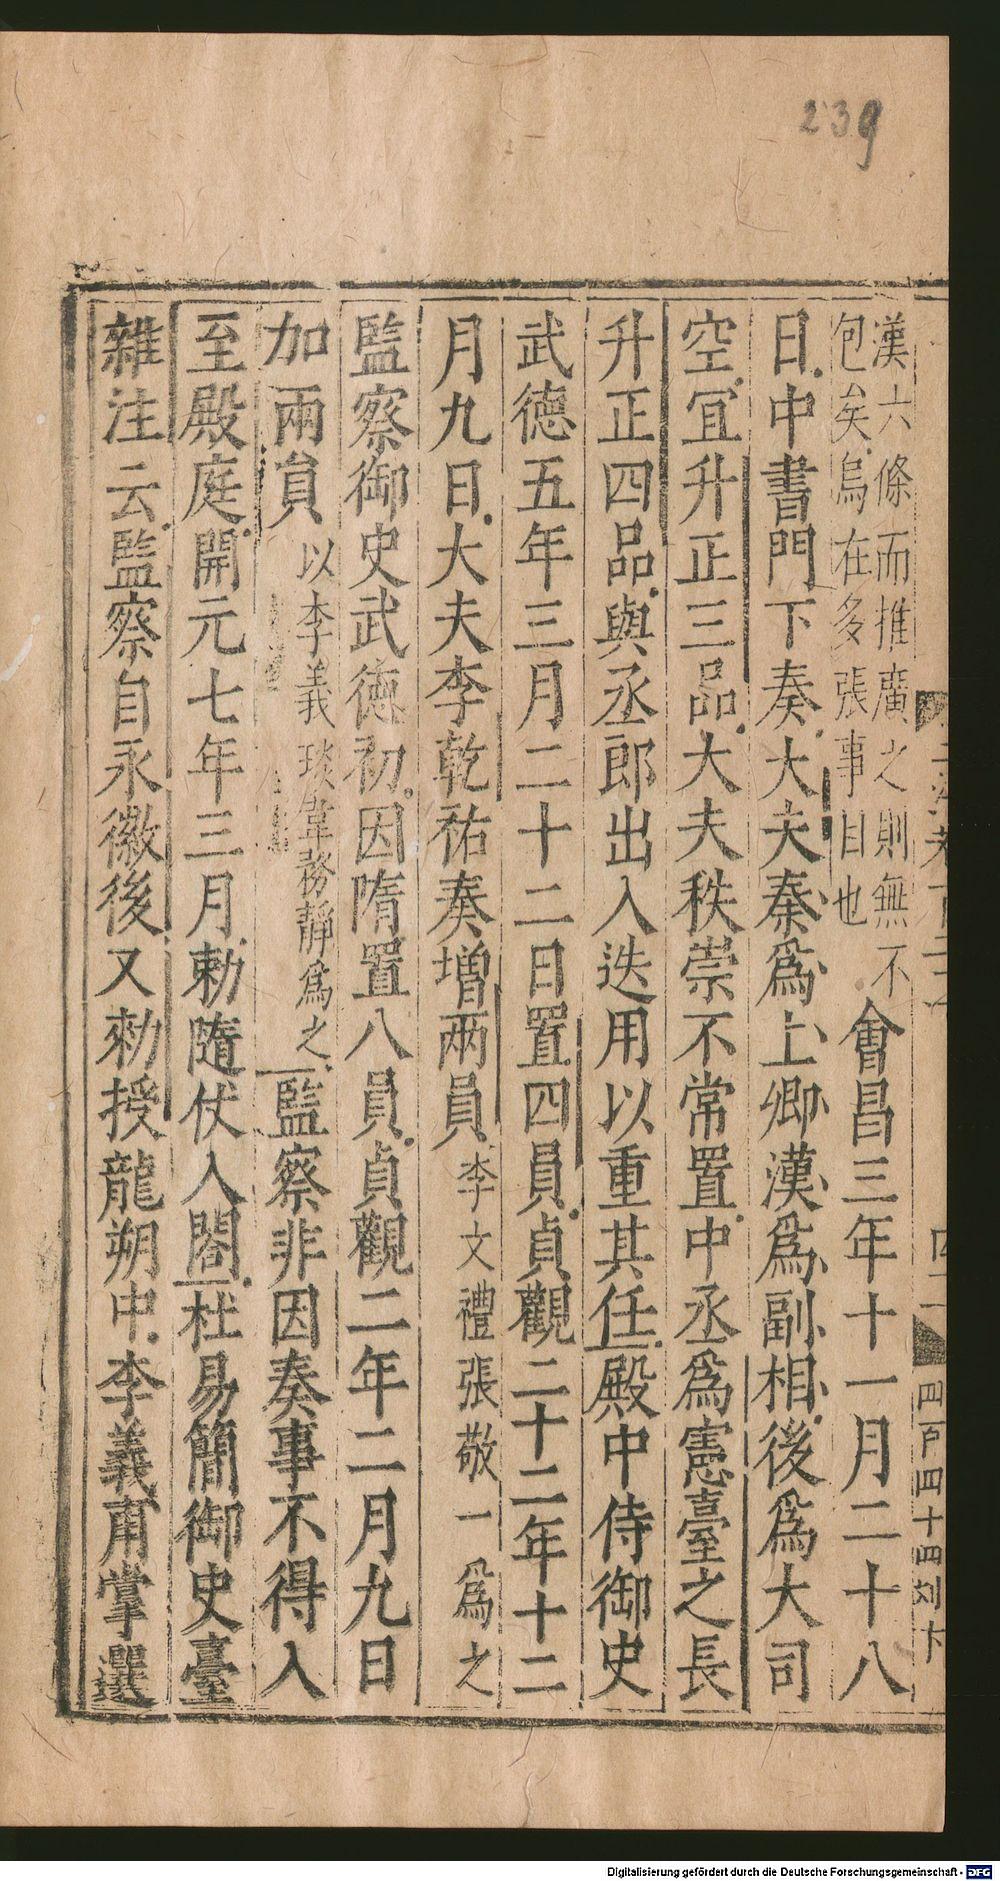 239
漢六條而推廣之則無不
包矣烏在多張事目也
會昌三年十一月二十八
日中書門下奏大夫秦爲上卿漢爲副相後爲大司
空宜升正三品大夫秩崇不常置中丞爲憲臺之長
升正四品與丞郎出入迭用以重其任殿中侍御史
武德五年三月二十二日置四員貞觀二十二年十二
月九日大夫李乾祐奏增兩員李文禮張敬一爲之
監察御史武德初因隋置八員貞觀二年二月九日
加兩負以李義琰韋務靜爲之監察非因奏事不得入
至殿庭開元七年三月勑隨仗入閤杜易簡御史臺
雜注云監察自永徽後又勑授龍朔中李義甫掌選
Digitalisierung gefördert durch die Deutsche Forschungsgemeinschaft - DFG